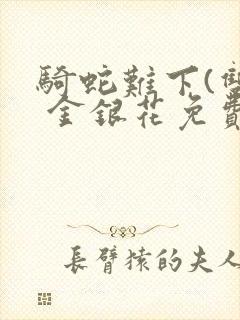 騎蛇難下(雙
金銀花免費
長臂猿的夫人